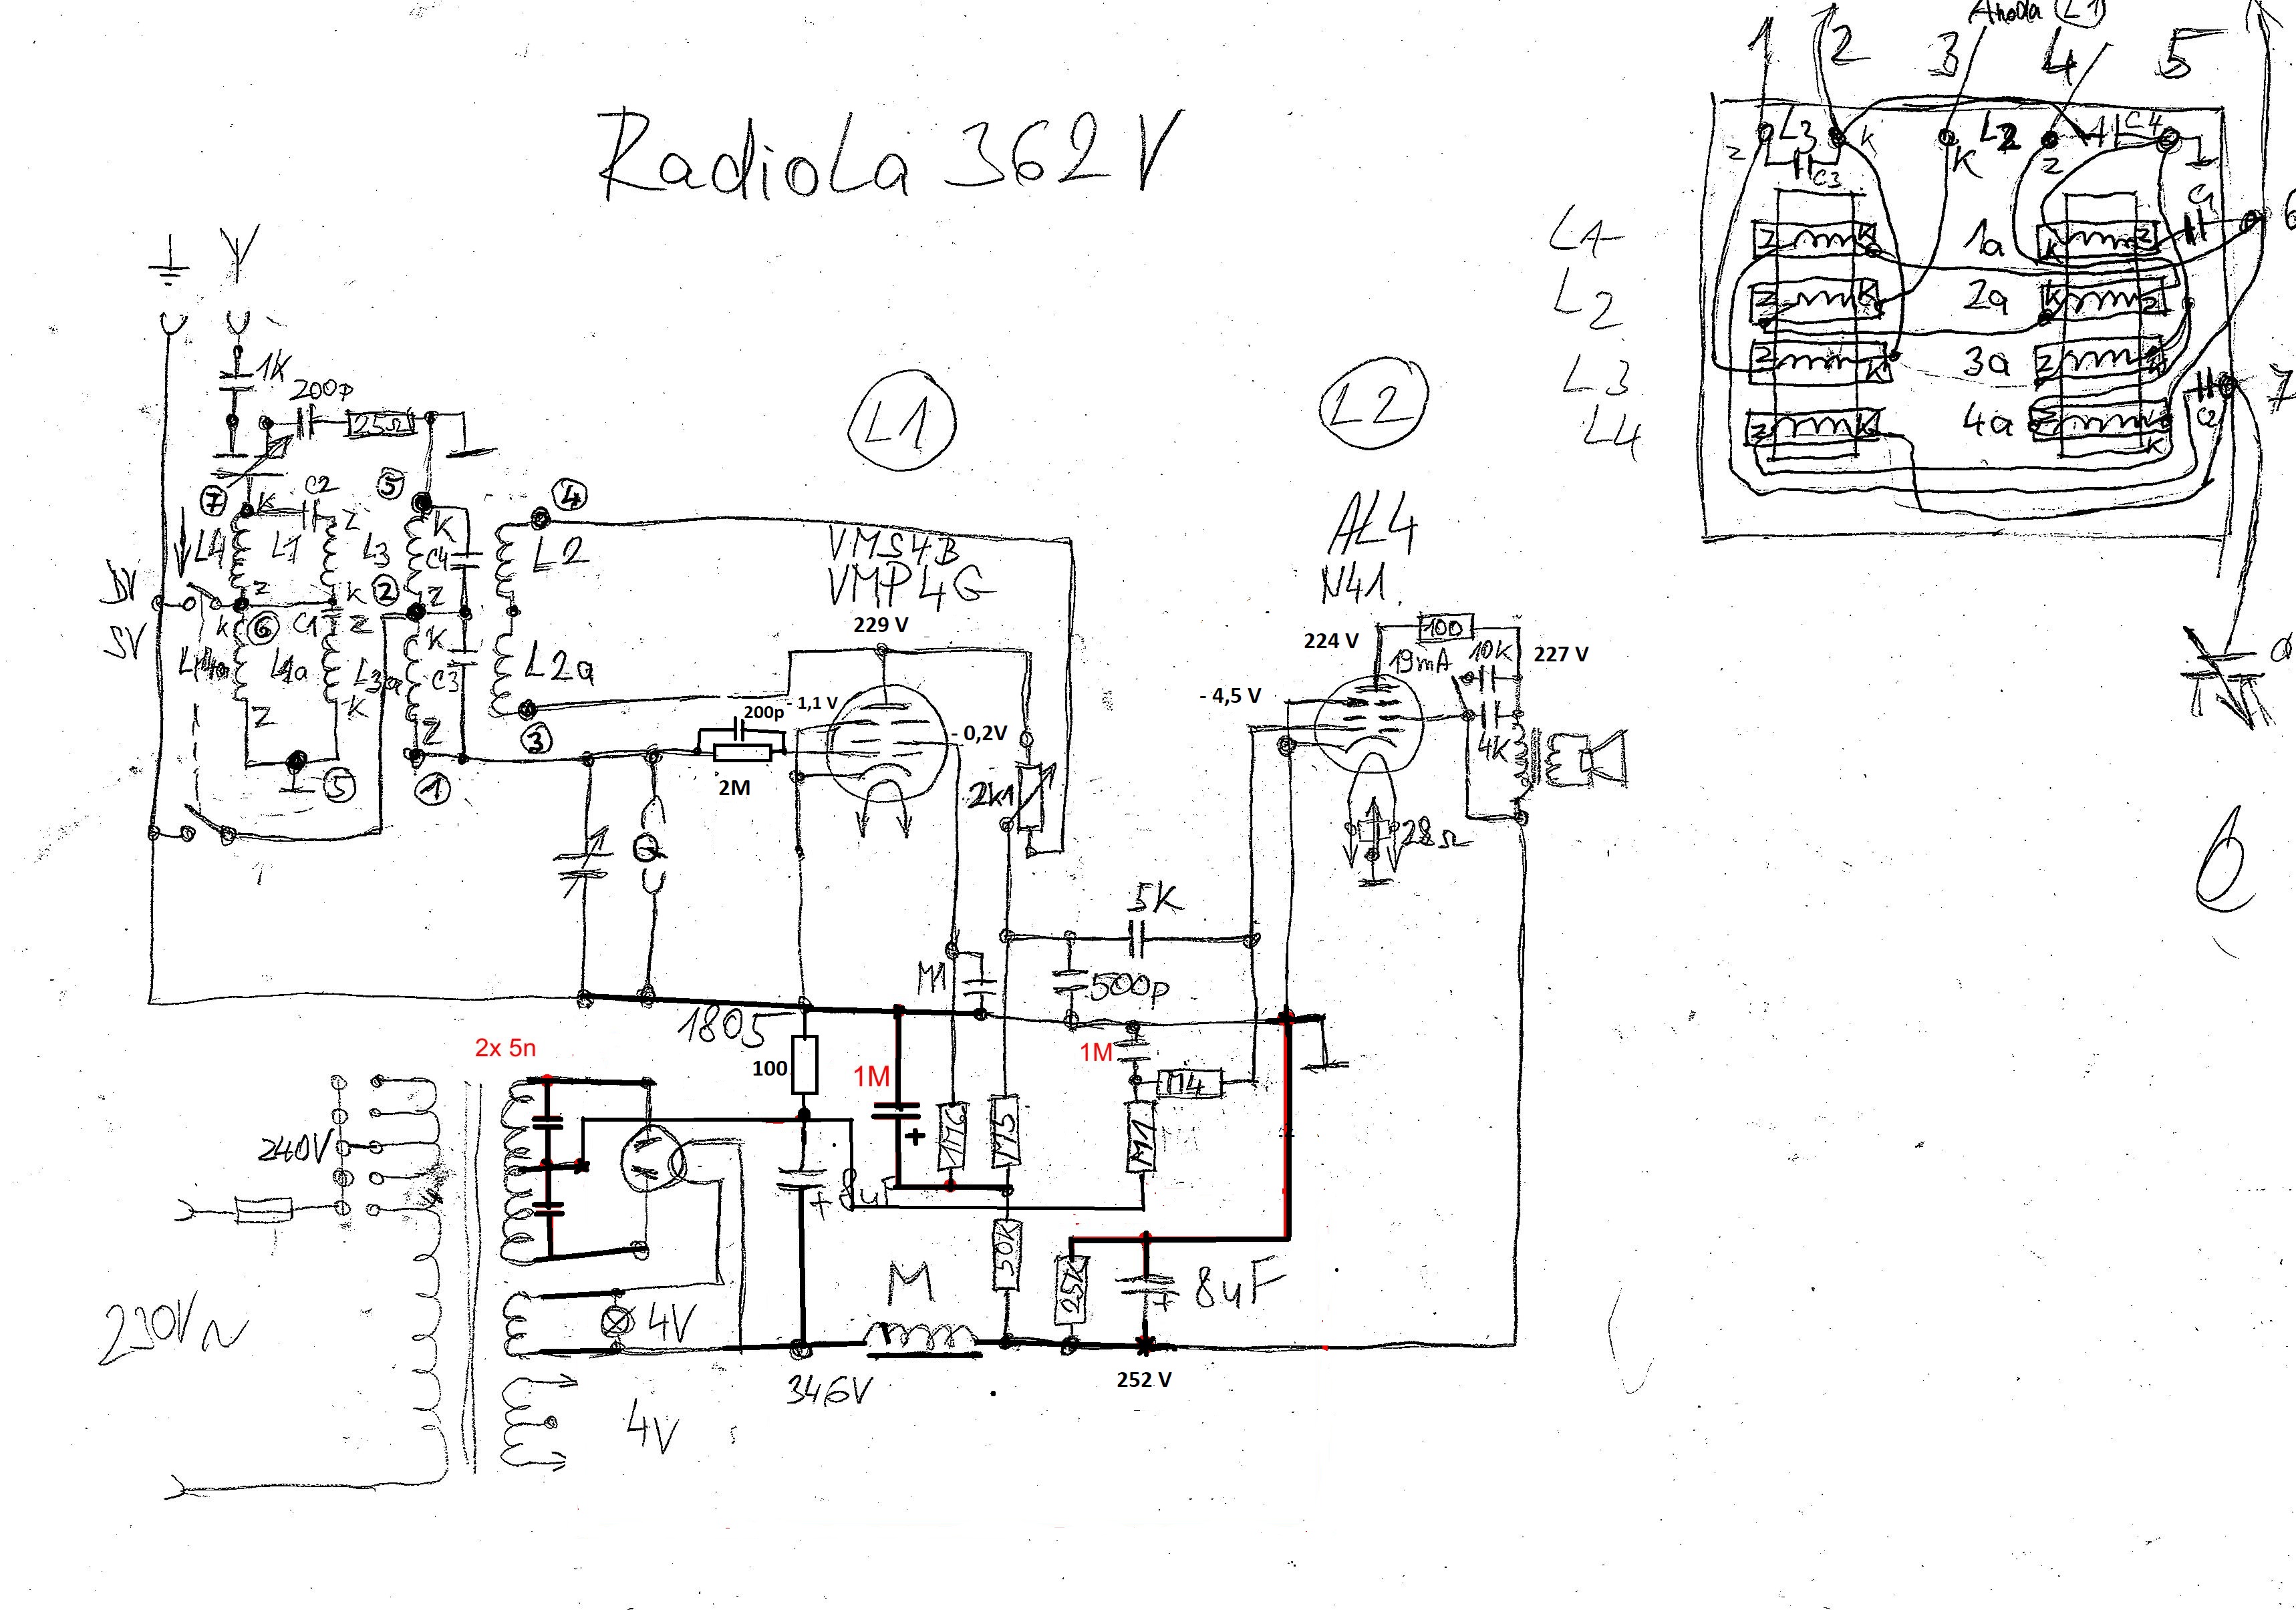 RadioLa 362V
1K
200p
25Ω
7
K
C2
5
4
Z
K
L4
L1
L3
C4
L2
DV
Z
K
2
Z
SV
K
6
C1
Z
K
L1a
L3a
C3
L2a
Z
K
Z
3
5
1
L1
VMS4B
VMP4G
229 V
200p
- 1,1 V
- 0,2V
2M
2k1
L2
AL4
N41.
224 V
100
19mA
10K
227 V
- 4,5 V
4K
28Ω
5K
M1
500p
1805
2x 5n
100
1M
1M
M4
+
1M6
M5
M1
240V
+ 8u
50K
25K
+ 8uF
M
230V~
4V
346V
252 V
4V
Anoda L1
1 2 3 4 5
Z L3 K K L2 Z C4
C3
L1 Z K 1a K Z C1 6
L2 Z K 2a K Z
L3 Z K 3a Z K
7
L4 Z K 4a Z K C2
K